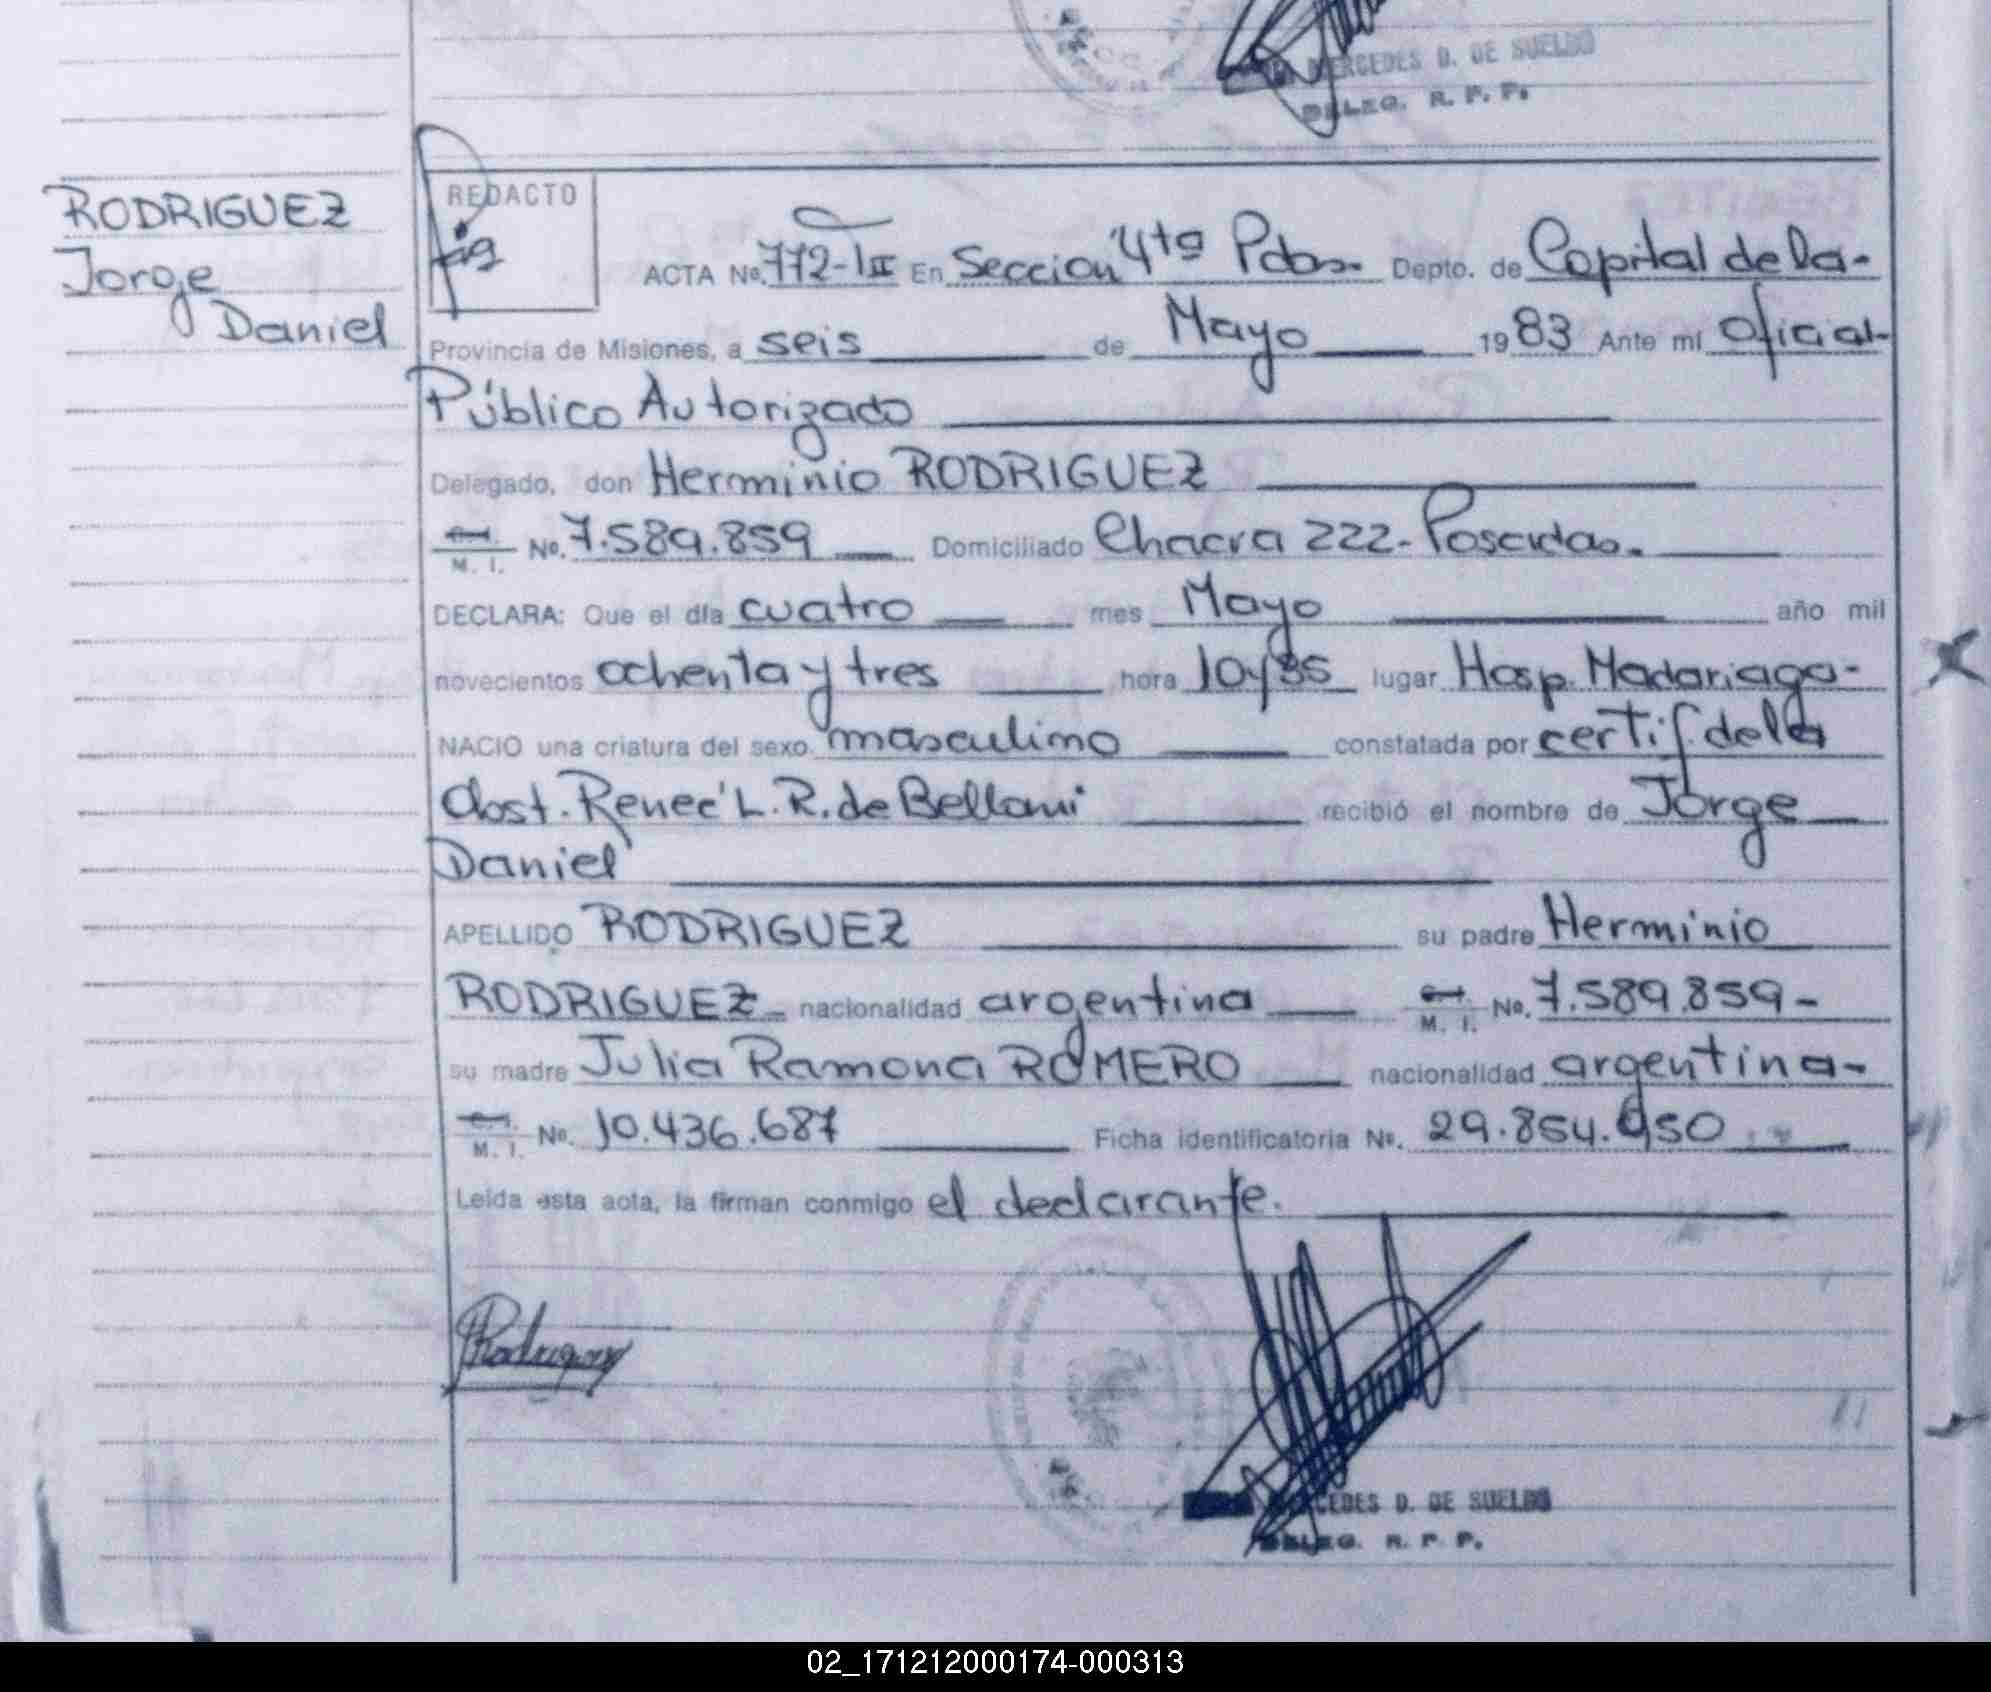 MERCEDES D. DE SUELDO
DELEG. R. P. P.
RODRIGUEZ
Jorge
Daniel
REDACTO
ACTA No. 772-III En Seccion 4ta Pdas. Depto. de Capital de la-
Provincia de Misiones, a seis de Mayo 1983 Ante mí Oficial-
Público Autorizado
Delegado, don Herminio RODRIGUEZ
M. I. No. 7.589.859 Domiciliado Chacra 222- Posadas.
DECLARA: Que el día cuatro mes Mayo año mil
novecientos ochenta y tres hora 10y35 lugar Hosp. Madariaga-
NACIO una criatura del sexo masculino constatada por certif. de la
Obst. Reneé L. R. de Bellani recibió el nombre de Jorge
Daniel
APELLIDO RODRIGUEZ su padre Herminio
RODRIGUEZ nacionalidad argentina M. I. No. 7.589.859-
su madre Julia Ramona ROMERO nacionalidad argentina-
M. I. No. 10.436.687 Ficha identificatoria No. 29.854.950
Leída esta acta, la firman conmigo el declarante.
Rodriguez
CEDES D. DE SUELDO
DELEG. R. P. P.
02_171212000174-000313